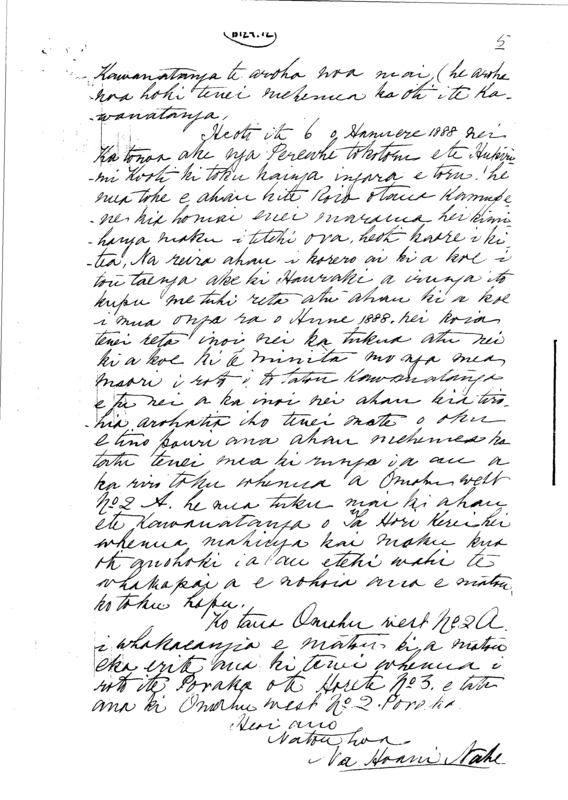 B129.12
5
Kawanatanga te aroha noa mai, (he aroha
noa hoki tenei mehemea ka oti i te Ka-
-wanatanga.
Heoti i te 6 o Hanuere 1888 nei
Ka tonoa ake nga Pereohe tokotoru e te
mi Kooti ki toku kainga ingara e toru! he
mea tohe e ahau ki te Koio otaua Kamupe
ne, kia homai enei marama hei kimi
hanga maku i tetehi ora, heoti kaore i ki
tea, Na reira ahau i korero ai ki a koe i
tou taenga ake ki Hauraki a i runga i to
kupu me tuhi reta atu ahau ki a koe
i mua o nga ra o Hune 1888, nei koia
tenei reta inoi nei ka tukua atu nei
ki a koe ki te minita mo nga mea
maori i roto i to tatou Kawanatanga
e tu nei a ka inoi nei ahau kia tiro-
-hia arohatia iho tenei mate o oku
e tino pouri ana ahau mehemea ka
tatu tenei mea ki runga i a au a
ka riro toku whenua a Omahu west
No 2 A. he mea tuku mai ki ahau
e te Kawanatanga o Ta Hori Kerei hei
whenua mahinga kai maku kua
oti ano hoki i a au etehi wahi te
whakapai a e nohoia ana e matou
ko toku hapu.
Ko taua Omahu west No 2 A
i whakaeangia e matou ki nga matou
eka e rite ana ki tenei whenua i
roto i te Poraka o te Horete No 3. e tatu
ana ki Omahu west No 2. Poraka
Heoi ano
Na tou hoa
Na Hoani Nahe